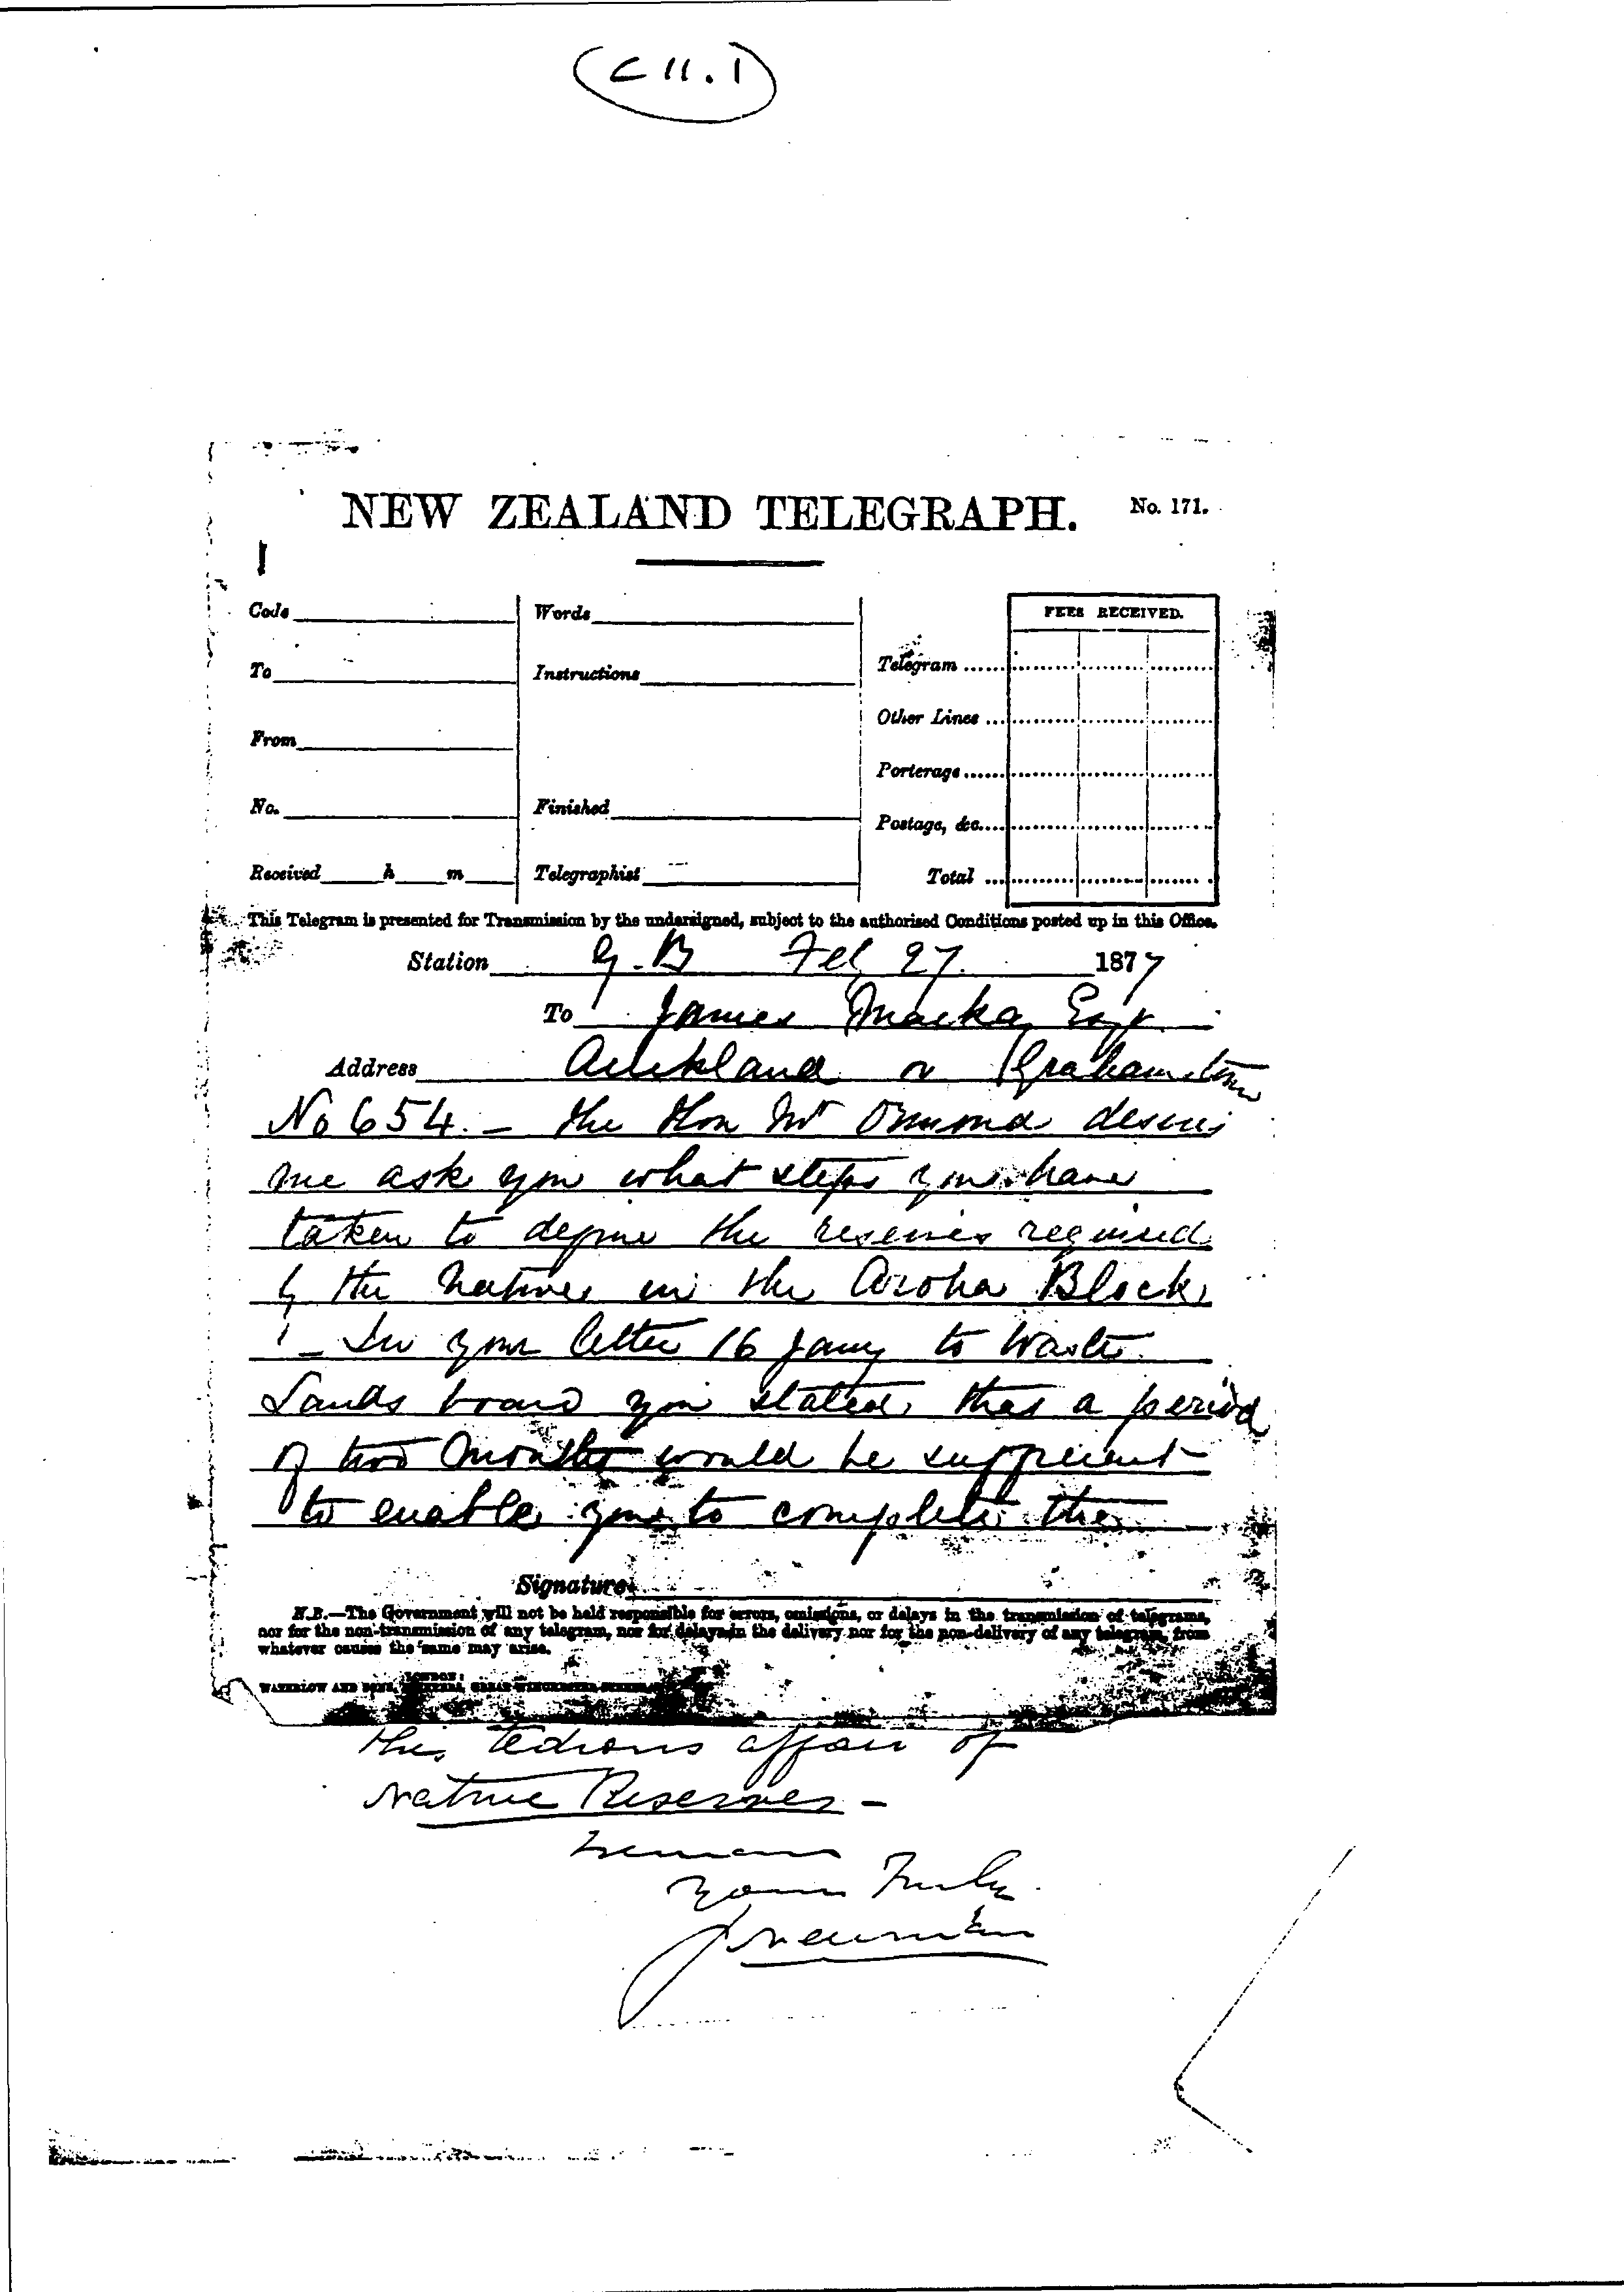 (C 11.1)
NEW ZEALAND TELEGRAPH. No. 171.
Code Words FEES RECEIVED.
To Instructions Telegram ......
Other Lines ...
From
Porterage ......
No. Finished
Postage, &c....
Received h m Telegraphist Total ...
This Telegram is presented for Transmission by the undersigned, subject to the authorised Conditions posted up in this Office.
Station G.B Feb 27. 1877
To James Mackay Esqr
Address Auckland or Grahamstown
No 654. – the Hon Mr Ormond desires
me ask you what steps you have
taken to define the reserves required
by the Natives in the Aroha Block
– In your letter 16 Jany to Waste
Lands board you stated that a period
of two months would be sufficient
to enable you to complete the
Signature
N.B.—The Government will not be held responsible for errors, omissions, or delays in the transmission of telegrams,
nor for the non-transmission of any telegram, nor for delays in the delivery nor for the non-delivery of any telegram, from
whatever causes the same may arise.
LONDON:
WATERLOW AND SONS, GREAT WINCHESTER
this tedious affair of
Native Reserves –
Yours Truly